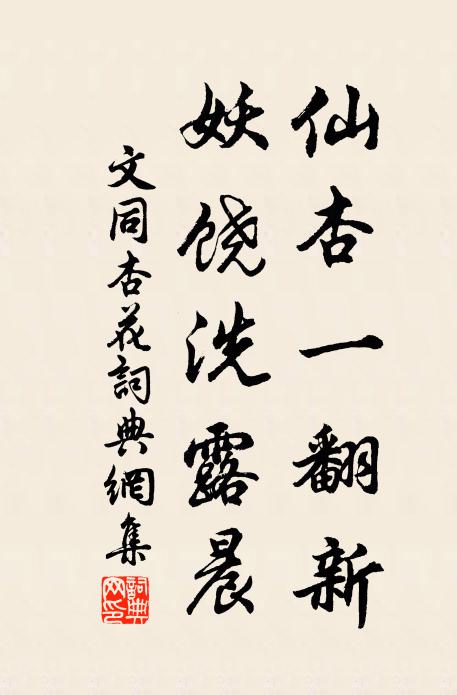 仙杏一翻新
妖饶洗露晨
文同杏花詞典網集
詞典网印